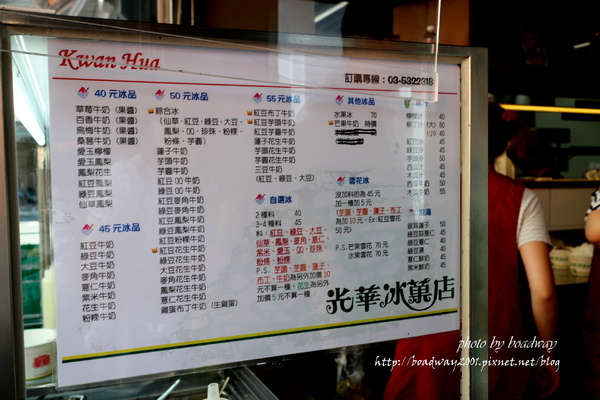 Kwan Hua
訂購專線：03-5322318
40 元冰品
草莓牛奶（果醬）
百香牛奶（果醬）
烏梅牛奶（果醬）
桑葚牛奶（果醬）
愛玉檸檬
愛玉鳳梨
鳳梨花生
紅豆鳳梨
綠豆鳳梨
仙草鳳梨
45 元冰品
紅豆牛奶
綠豆牛奶
大豆牛奶
麥角牛奶
薏仁牛奶
紫米牛奶
花生牛奶
粉粿牛奶
50 元冰品
綜合冰
（仙草、紅豆、綠豆、大豆、
鳳梨、QQ、珍珠、粉粿、
粉條、芋薏）
蓮子牛奶
芋頭牛奶
芋薏牛奶
紅豆QQ牛奶
綠豆QQ牛奶
紅豆麥角牛奶
綠豆麥角牛奶
紅豆薏仁牛奶
綠豆薏仁牛奶
紅豆鳳梨牛奶
綠豆鳳梨牛奶
紅豆粉粿牛奶
紅豆花生牛奶
綠豆花生牛奶
大豆花生牛奶
麥角花生牛奶
鳳梨花生牛奶
薏仁花生牛奶
雞蛋布丁牛奶（生雞蛋）
55 元冰品
紅豆布丁牛奶
紅豆芋頭牛奶
紅豆芋薏牛奶
蓮子花生牛奶
芋頭花生牛奶
芋薏花生牛奶
三豆牛奶
（紅豆、綠豆、大豆）
自選冰
2 種料 40
3-4 種料 45
料：紅豆、綠豆、大豆、
仙草、鳳梨、麥角、薏仁、
紫米、愛玉、QQ、珍珠、
粉條、粉粿
P.S. 芋頭、芋薏、蓮子、
布丁、牛奶為另外加價 10
元不算一種，花生為另外
加價 5 元不算一種
其他冰品
水果冰 70
芒果牛奶 時價
雪花冰
沒加料的為 45 元
加一種加 5 元
（芋頭、芋薏、蓮子、布丁
為加 10 元，Ex:紅豆雪花
50 元）
P.S. 芒果雪花 70 元
水果雪花 70 元
光華冰菓店
photo by boadway
http://boadway2001.pixnet.net/blog